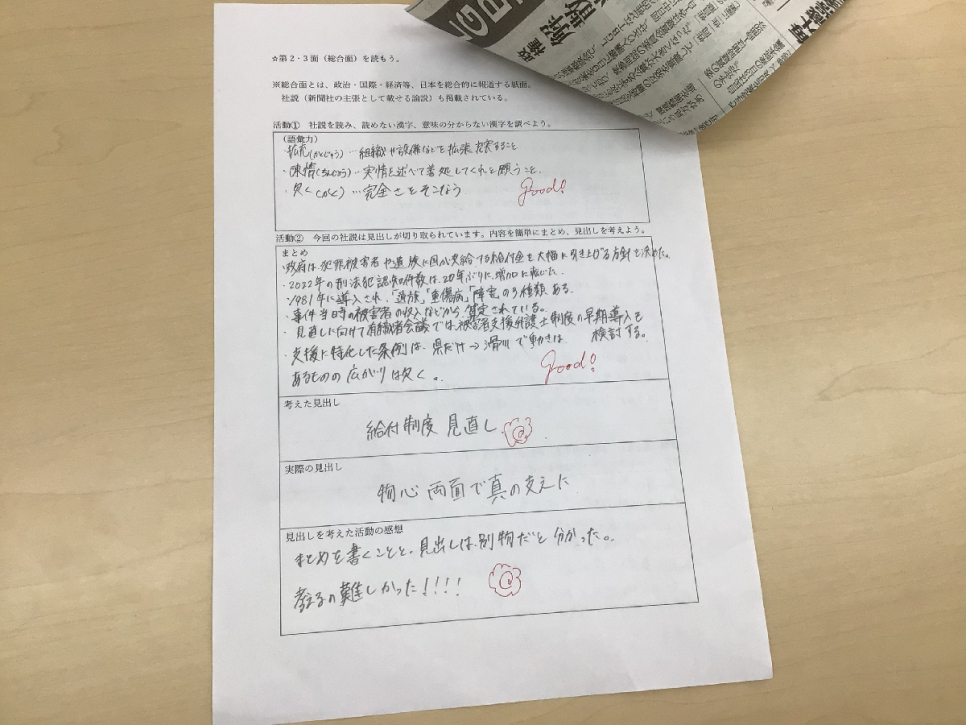 ☆第2・3面（総合面）を読もう。
※総合面とは、政治・国際・経済等、日本を総合的に報道する紙面。
社説（新聞社の主張として載せる論説）も掲載されている。
活動① 社説を読み、読めない漢字、意味の分からない漢字を調べよう。
（語彙力）
拡充(かくじゅう)…組織や設備などを拡張充実すること
・陳情(ちんじょう)…実情を述べて善処してくれと願うこと。
・欠く(かく)…完全さをそこなう
good!
活動② 今回の社説は見出しが切り取られています。内容を簡単にまとめ、見出しを考えよう。
まとめ
・政府は、犯罪被害者や遺族に国が支給する給付金を大幅に引き上げる方針を決めた。
・2022年の刑法犯認知件数は、20年ぶりに増加に転じた。
・1981年に導入され、「遺族」「重傷病」「障害」の3種類ある。
・事件当時の被害者の収入などから算定されている。
・見直しに向けて有識者会議では、被害者支援弁護士制度の早期導入も
検討する。
・支援に特化した条例は、県だけ→滑川で動きは
あるものの広がりは欠く。
good!
考えた見出し
給付制度 見直し
実際の見出し
物心両面で真の支えに
見出しを考えた活動の感想
まとめを書くことと、見出しは別物だと分かった。
考えるの難しかった!!!!